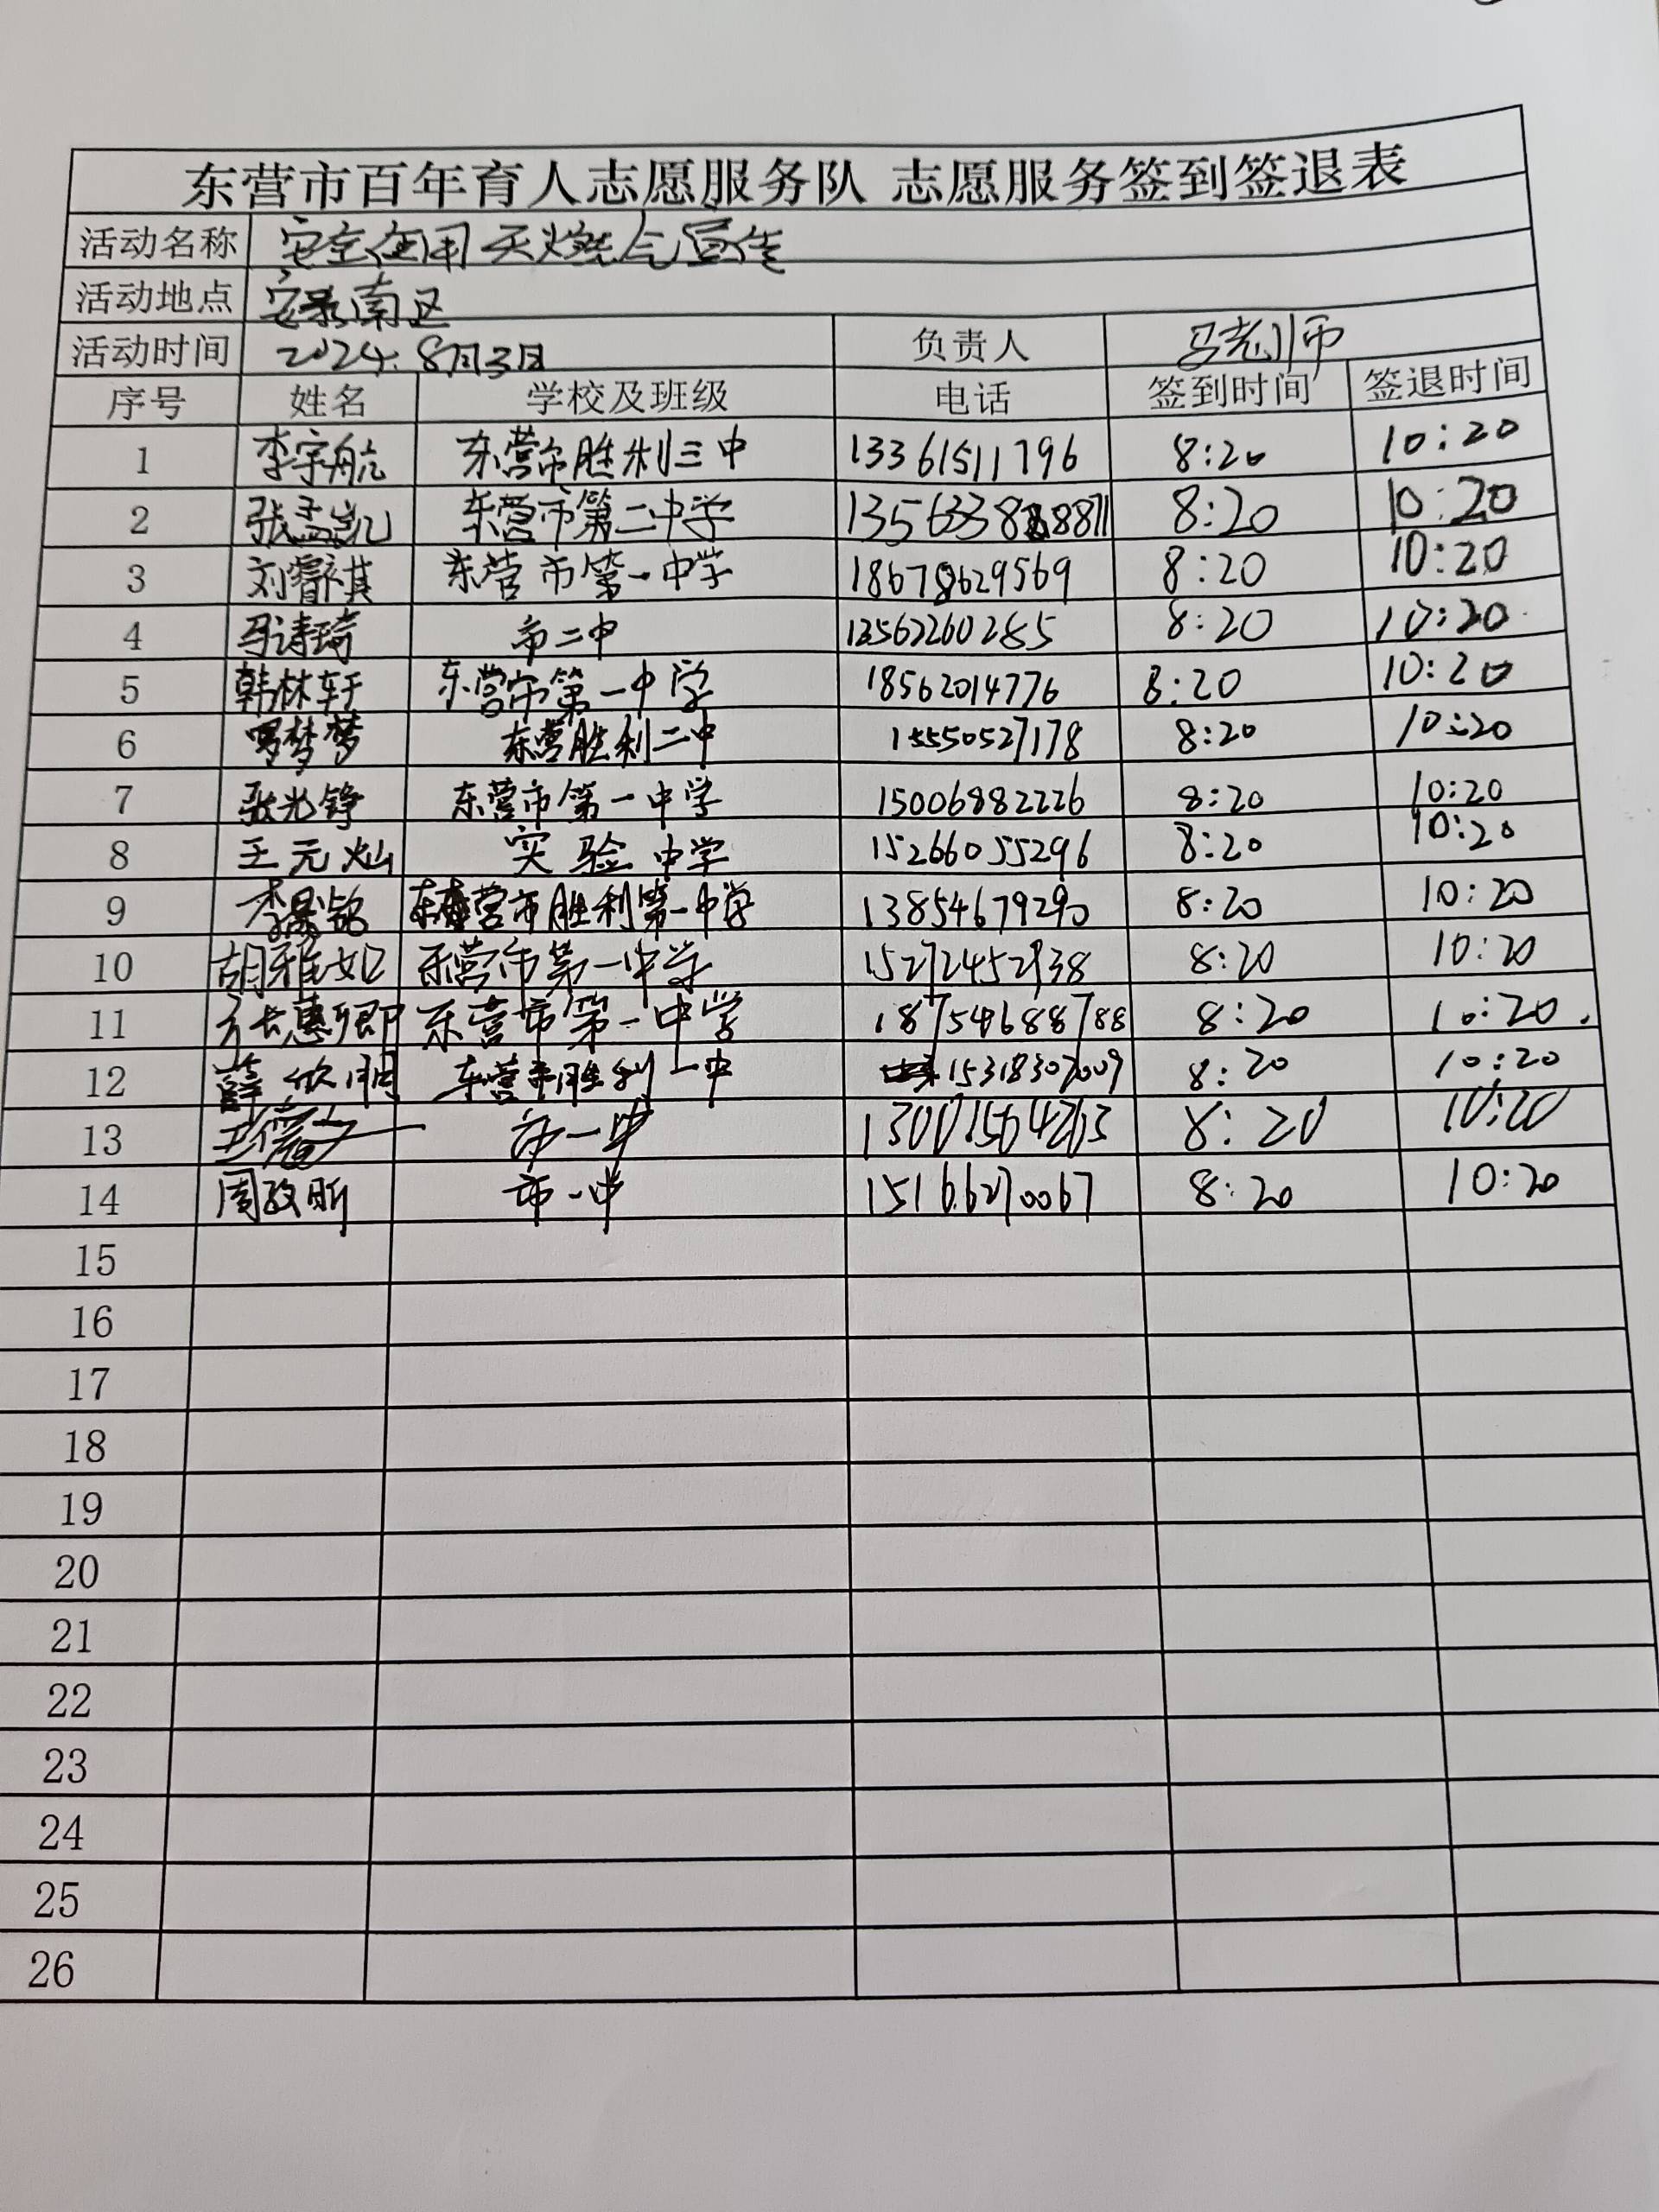 东营市百年育人志愿服务队 志愿服务签到签退表
活动名称 安全使用天燃气宣传
活动地点 南区
活动时间 2024.8月3日 负责人 冯老师
序号 姓名 学校及班级 电话 签到时间 签退时间
1 李宇航 东营市胜利三中 13361511796 8:20 10:20
2 张孟凯 东营市第二中学 8:20 10:20
3 刘睿祺 东营市第一中学 18678629569 8:20 10:20
4 马诗琦 市二中 13562260285 8:20 10:20
5 韩林轩 东营市第一中学 18562014776 8:20 10:20
6 梦梦 东营胜利二中 15550527178 8:20 10:20
7 张光铮 东营市第一中学 15006882226 8:20 10:20
8 王元灿 实验中学 15266055296 8:20 10:20
9 李晟铭 东营市胜利第一中学 13854679290 8:20 10:20
10 胡雅妃 东营市第一中学 15272452938 8:20 10:20
11 东营市第一中学 18754688788 8:20 10:20.
12 薛欣玥 东营市胜利一中 15318307009 8:20 10:20
13 市一中 8:20 10:20
14 周致昕 市一中 15166270067 8:20 10:20
15
16
17
18
19
20
21
22
23
24
25
26